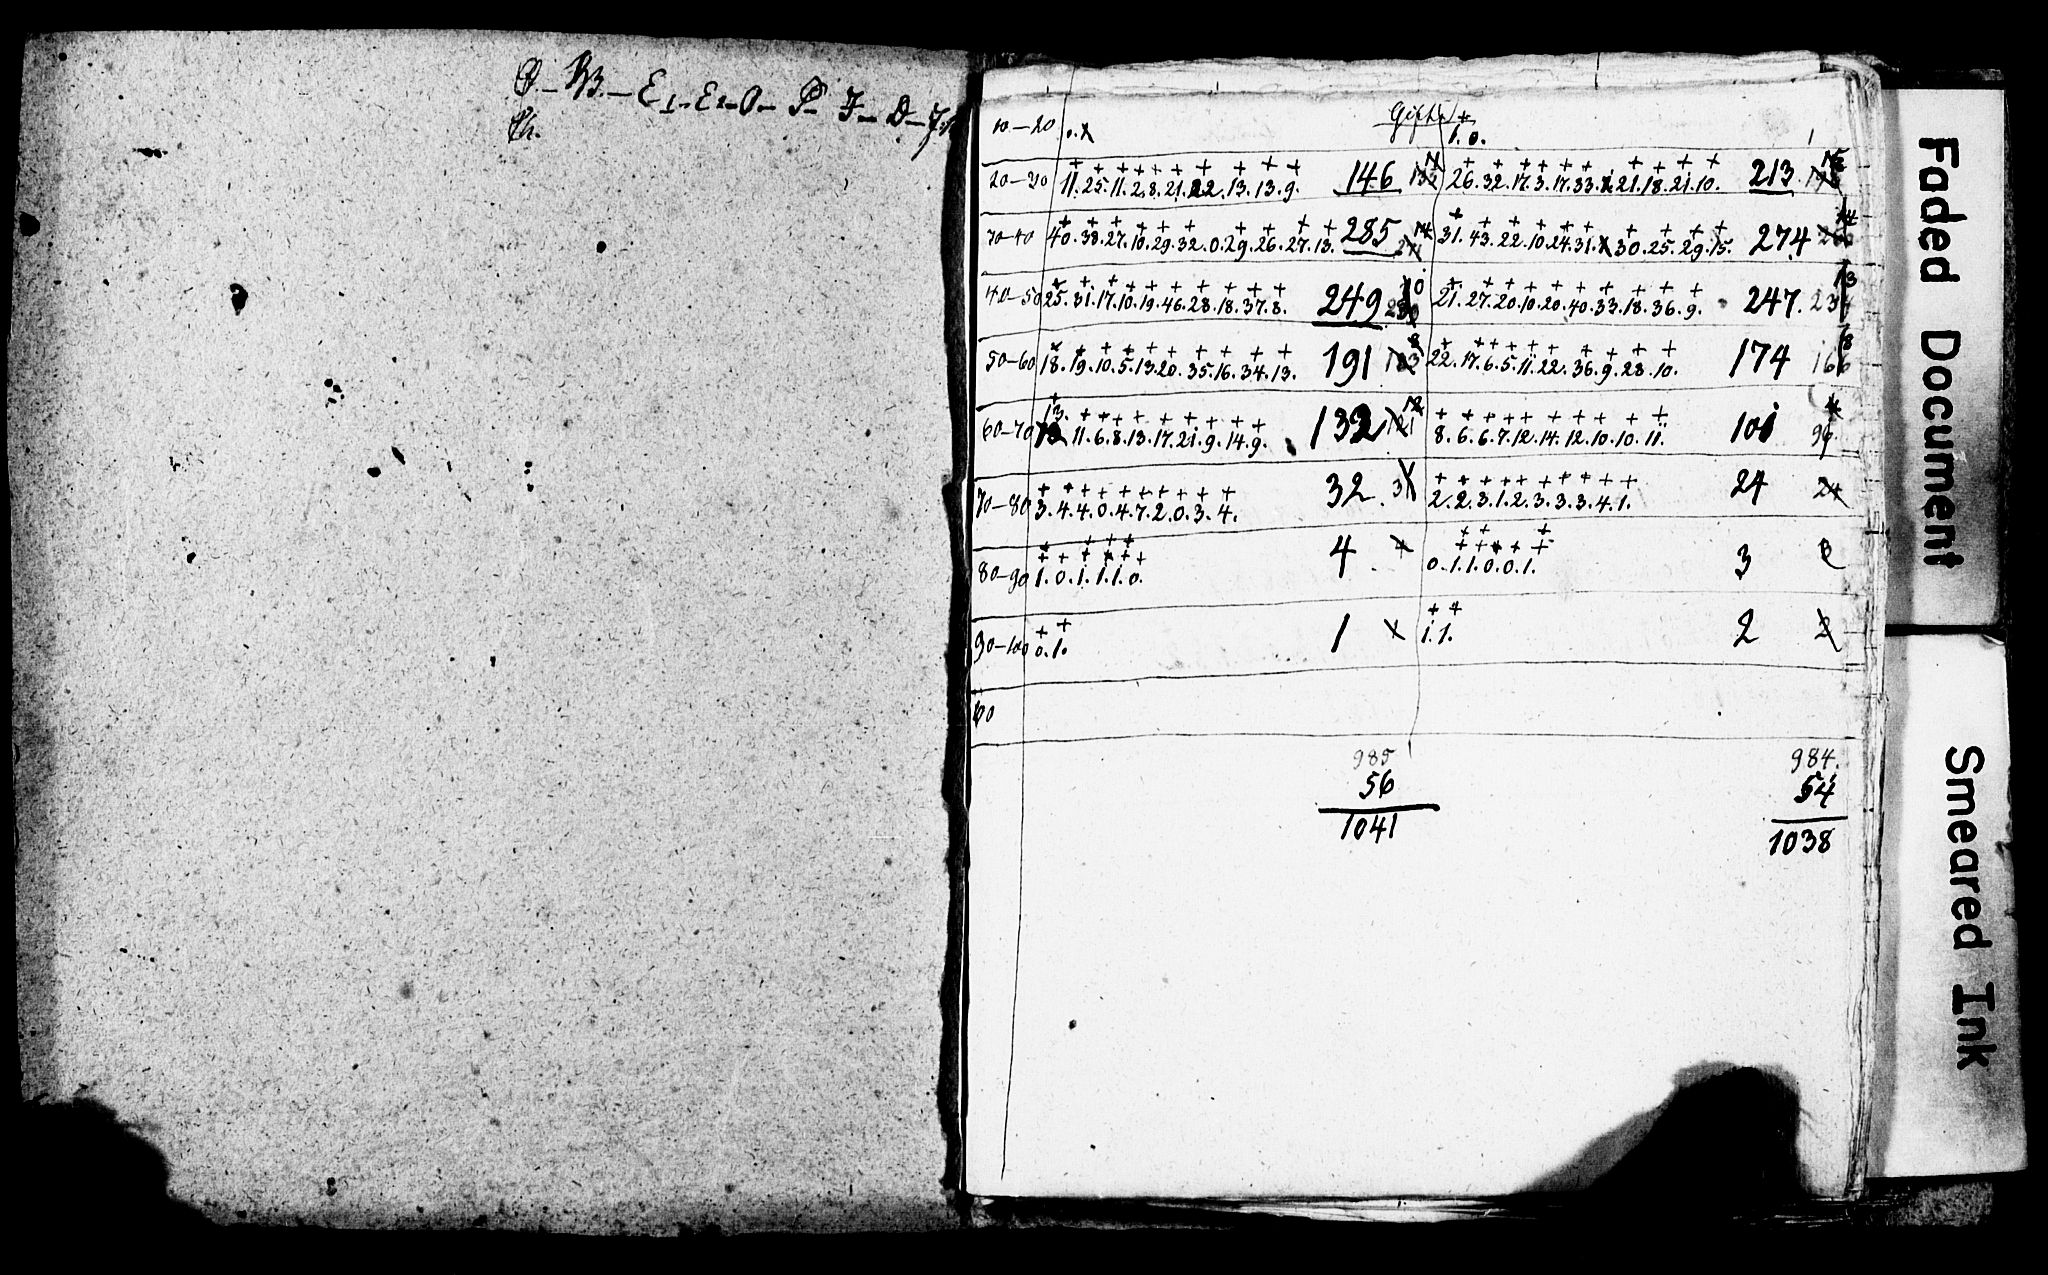 E1 - E2 - O - P - F - D -
Gifte
10-20 1. 0.
20-30 11. 25. 11. 2. 8. 21. 22. 13. 13. 9. 146 132 26. 32. 17. 3. 17. 33. 21. 18. 21. 10. 213
30-40 40. 38. 27. 10. 29. 32. 0. 29. 26. 27. 13. 285 271 14 31. 43. 22. 10. 24. 31. 30. 25. 29. 15. 274 14
40-50 25. 31. 17. 10. 19. 46. 28. 18. 37. 8. 249 10 21. 27. 20. 10. 20. 40. 33. 18. 36. 9. 247. 234 13
50-60 18. 19. 10. 5. 13. 20. 35. 16. 34. 13. 191 183 8 22. 17. 6. 5. 11. 22. 36. 9. 28. 10. 174 166 8
13.
60-70 11. 6. 8. 13. 17. 21. 9. 14. 9. 132 121 12 8. 6. 6. 7. 12. 14. 12. 10. 10. 11. 101 4
70-80 3. 4. 4. 0. 4. 7. 2. 0. 3. 4. 32 2. 2. 3. 1. 2. 3. 3. 3. 4. 1. 24 24
80-90 1. 0. 1. 1. 1. 0. 4 4 0. 1. 1. 0. 0. 1. 3
90-100 0. 1. 1 1. 1. 2 2
985 984.
56 54
1041 1038
Faded Document
Smeared Ink